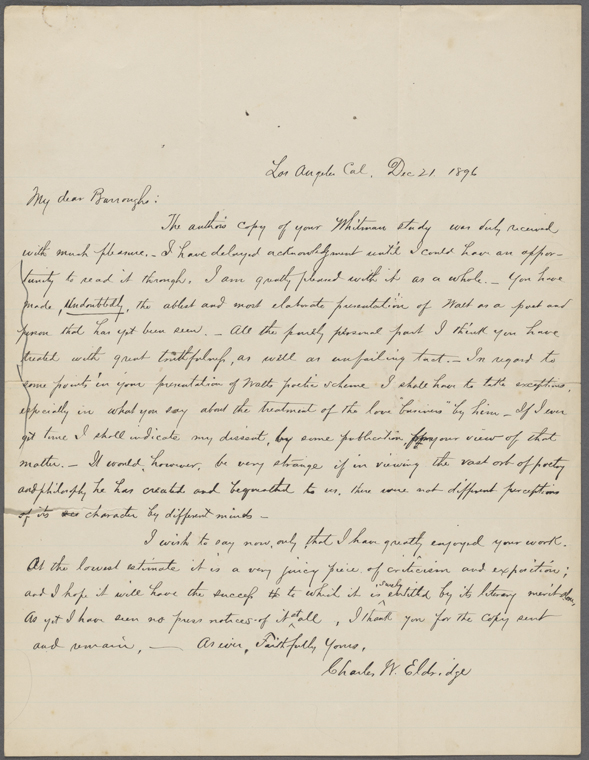 Los Angeles Cal. Dec 21 1896
My dear Burroughs:
The author's copy of your Whitman study was duly received
with much pleasure. — I have delayed acknowledgment until I could have an oppor-
tunity to read it through. I am greatly pleased with it as a whole. — You have
made, undoubtedly, the ablest and most elaborate presentation of Walt as a poet and
person that has yet been seen. — All the purely personal part I think you have
treated with great truthfulness, as well as unfailing tact. — In regard to
some points in your presentation of Walts poetic scheme I shall have to take exceptions,
especially in what you say about the treatment of the love "business" by him — If I ever
get time I shall indicate my dissent, by some publication your view of that
matter. — It would, however, be very strange if in viewing the vast orb of poetry
and philosophy he has created and bequeathed to us, there were not different perceptions
of its character by different minds —
I wish to say now, only that I have greatly enjoyed your work.
At the lowest estimate it is a very juicy piece of criticism and exposition;
and I hope it will have the success to which it is surely entitled by its literary merit alone,
As yet I have seen no press notices of it at all, I thank you for the copy sent
and remain, — As ever, Faithfully Yours,
Charles W. Eldridge